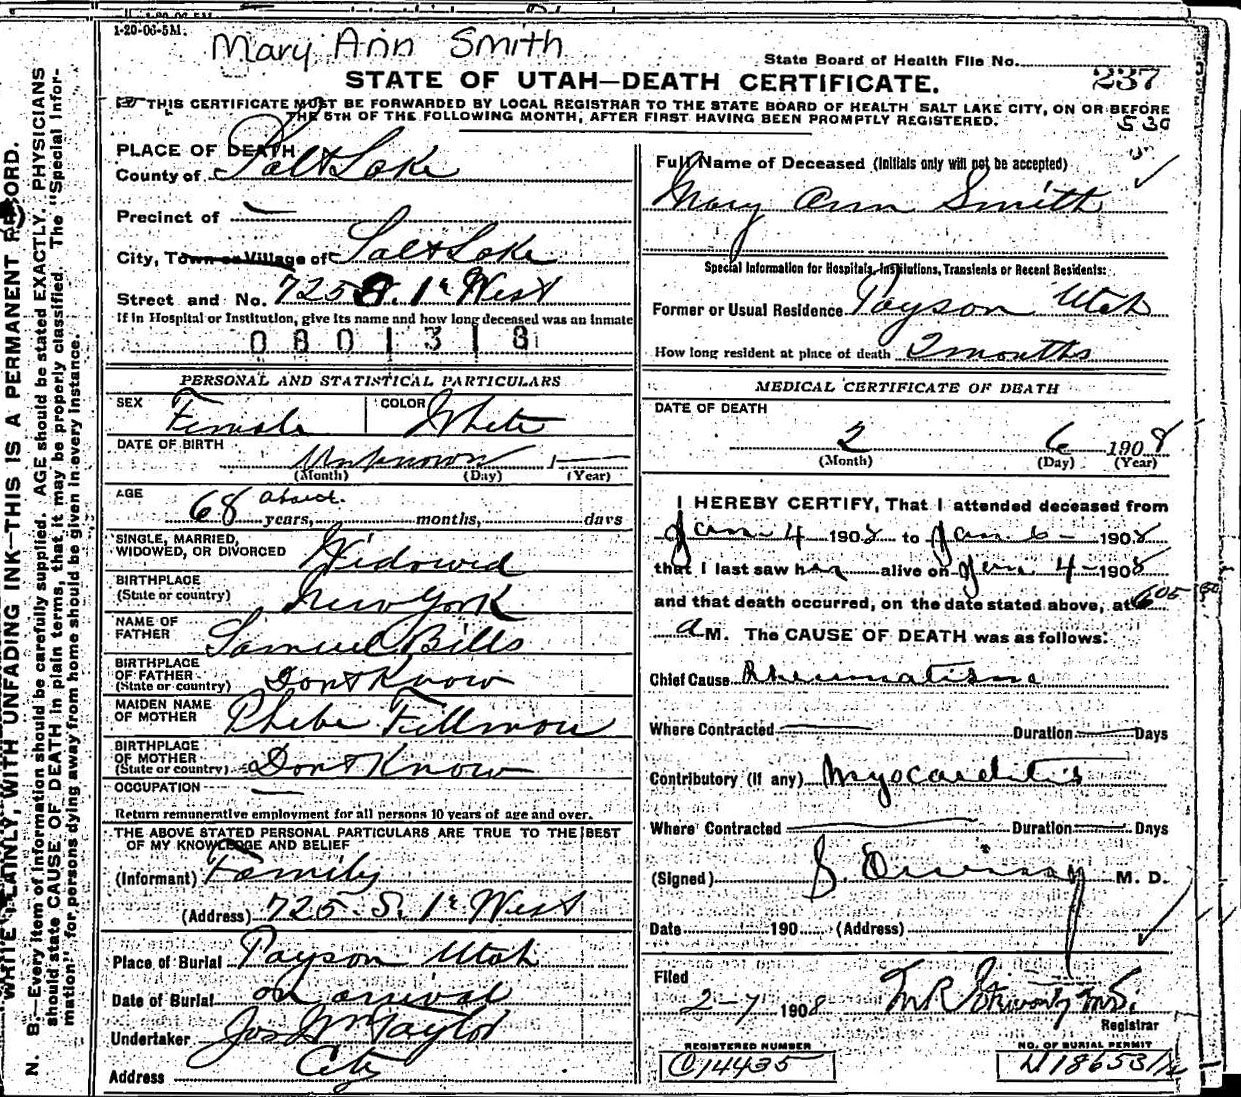 1-20-06-5M.
Mary Ann Smith
State Board of Health File No.
237
STATE OF UTAH—DEATH CERTIFICATE.
THIS CERTIFICATE MUST BE FORWARDED BY LOCAL REGISTRAR TO THE STATE BOARD OF HEALTH SALT LAKE CITY, ON OR BEFORE
THE 5TH OF THE FOLLOWING MONTH, AFTER FIRST HAVING BEEN PROMPTLY REGISTERED.
530
PLACE OF DEATH
County of Salt Lake
Precinct of —
City, Town or Village of Salt Lake
Street and No. 725 S. 1st West
If in Hospital or Institution, give its name and how long deceased was an inmate
0801318
PERSONAL AND STATISTICAL PARTICULARS
SEX Female COLOR White
DATE OF BIRTH
Unknown 1—
(Month) (Day) (Year)
AGE
68 about years, months, days
SINGLE, MARRIED,
WIDOWED, OR DIVORCED Widowed
BIRTHPLACE
(State or country) New York
NAME OF
FATHER Samuel Bills
BIRTHPLACE
OF FATHER
(State or country) Dont Know
MAIDEN NAME
OF MOTHER Phebe Fillmou
BIRTHPLACE
OF MOTHER
(State or country) Dont Know
OCCUPATION —
Return remunerative employment for all persons 10 years of age and over.
THE ABOVE STATED PERSONAL PARTICULARS ARE TRUE TO THE BEST
OF MY KNOWLEDGE AND BELIEF
(Informant) Family
(Address) 725. S. 1st West
Place of Burial Payson Utah
Date of Burial on arrival
Undertaker Jos Wm Taylor
Address City
Full Name of Deceased (Initials only will not be accepted)
Mary Ann Smith
Special Information for Hospitals, Institutions, Transients or Recent Residents:
Former or Usual Residence Payson Utah
How long resident at place of death 2 months
MEDICAL CERTIFICATE OF DEATH
DATE OF DEATH
2 6 1908
(Month) (Day) (Year)
I HEREBY CERTIFY, That I attended deceased from
Jan 4 1908 to Jan 6 1908
that I last saw her alive on Jan 4 1908
and that death occurred, on the date stated above, at 605
a M. The CAUSE OF DEATH was as follows:
Chief Cause Rheumatism
Where Contracted — Duration — Days
Contributory (if any) Myocarditis
Where Contracted — Duration — Days
(Signed) M. D.
Date 190 (Address)
Filed
2-7 1908
Registrar
REGISTERED NUMBER
C14435
NO. OF BURIAL PERMIT
N. B. Every item of information should be carefully supplied. AGE should be stated EXACTLY. PHYSICIANS
should state CAUSE OF DEATH in plain terms, that it may be properly classified. The "Special Infor-
mation" for persons dying away from home should be given in every instance.
WRITE PLAINLY, WITH UNFADING INK—THIS IS A PERMANENT RECORD.